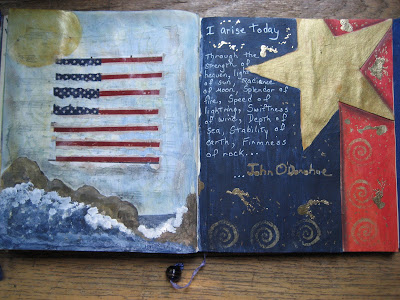 I arise today
Through the
strength of
heaven, light
of sun, Radiance
of Moon, Splendor of
fire, Speed of
lightning, Swiftness
of wind, Depth of
Sea, Stability of
earth, Firmness
of rock...
...John O'Donohue